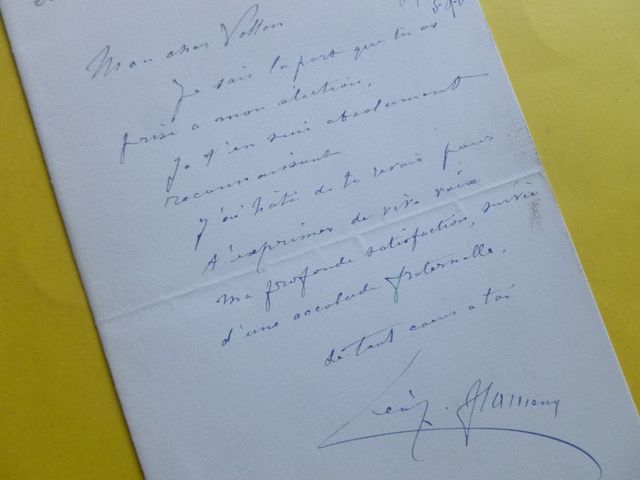 Mon cher Vollon
Je sais la part que tu as
prise a mon élection,
Je t'en suis absolument
reconnaissant
J'ai hâte de te revoir pour
t'exprimer de vive voix
ma profonde satisfaction, suivie
d'une accolade fraternelle.
de tout coeur a toi